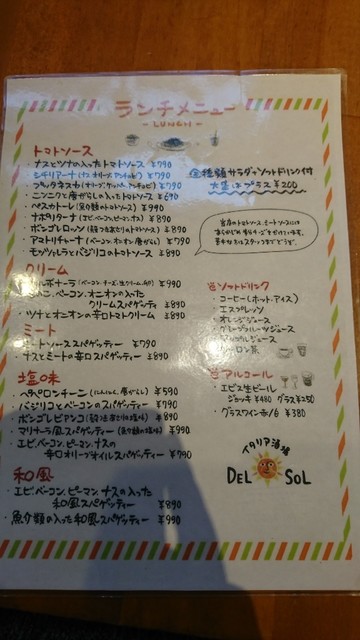 ランチメニュー
- LUNCH -
トマトソース
・ナスとツナの入ったトマトソース ¥790
・シチリアーナ ¥790
・プッタネスカ ¥790
・ニンニクと唐がらしの入ったトマトソース ¥690
・ペスカトーレ(魚介類のトマトソース) ¥990
・ナポリターナ ¥890
・ボンゴレロッソ ¥890
・アマトリチャーナ(ベーコン、オニオン、唐がらし) ¥790
・モッツァレラとバジリコのトマトソース ¥890
クリーム
カルボナーラ ¥890
ベーコン、オニオンの入った
クリームスパゲティー ¥890
・ツナとオニオンの辛口トマトクリーム ¥890
ミート
ミートソーススパゲティー ¥790
ナスとミートの辛口スパゲティー ¥890
塩味
・ペペロンチーニ(にんにく、唐がらし) ¥590
・バジリコとベーコンのスパゲティー ¥790
・ボンゴレビアンコ ¥890
・マリナーラ風スパゲティー(魚介類の塩味) ¥990
・エビ、ベーコン、ナスの
辛口オリーブオイルスパゲティー ¥790
和風
・エビ、ベーコン、ピーマン、ナスの入った
和風スパゲティー ¥890
・魚介類の入った和風スパゲティー ¥990
全種類サラダ・ソフトドリンク付
大盛はプラス ¥200
ソフトドリンク
・コーヒー(ホット、アイス)
・エスプレッソ
・オレンジジュース
・グレープフルーツジュース
アップルジュース
ウーロン茶
アルコール
・エビス生ビール
ジョッキ ¥480 グラス ¥250
・グラスワイン 赤/白 ¥380
イタリア酒場
DEL SOL